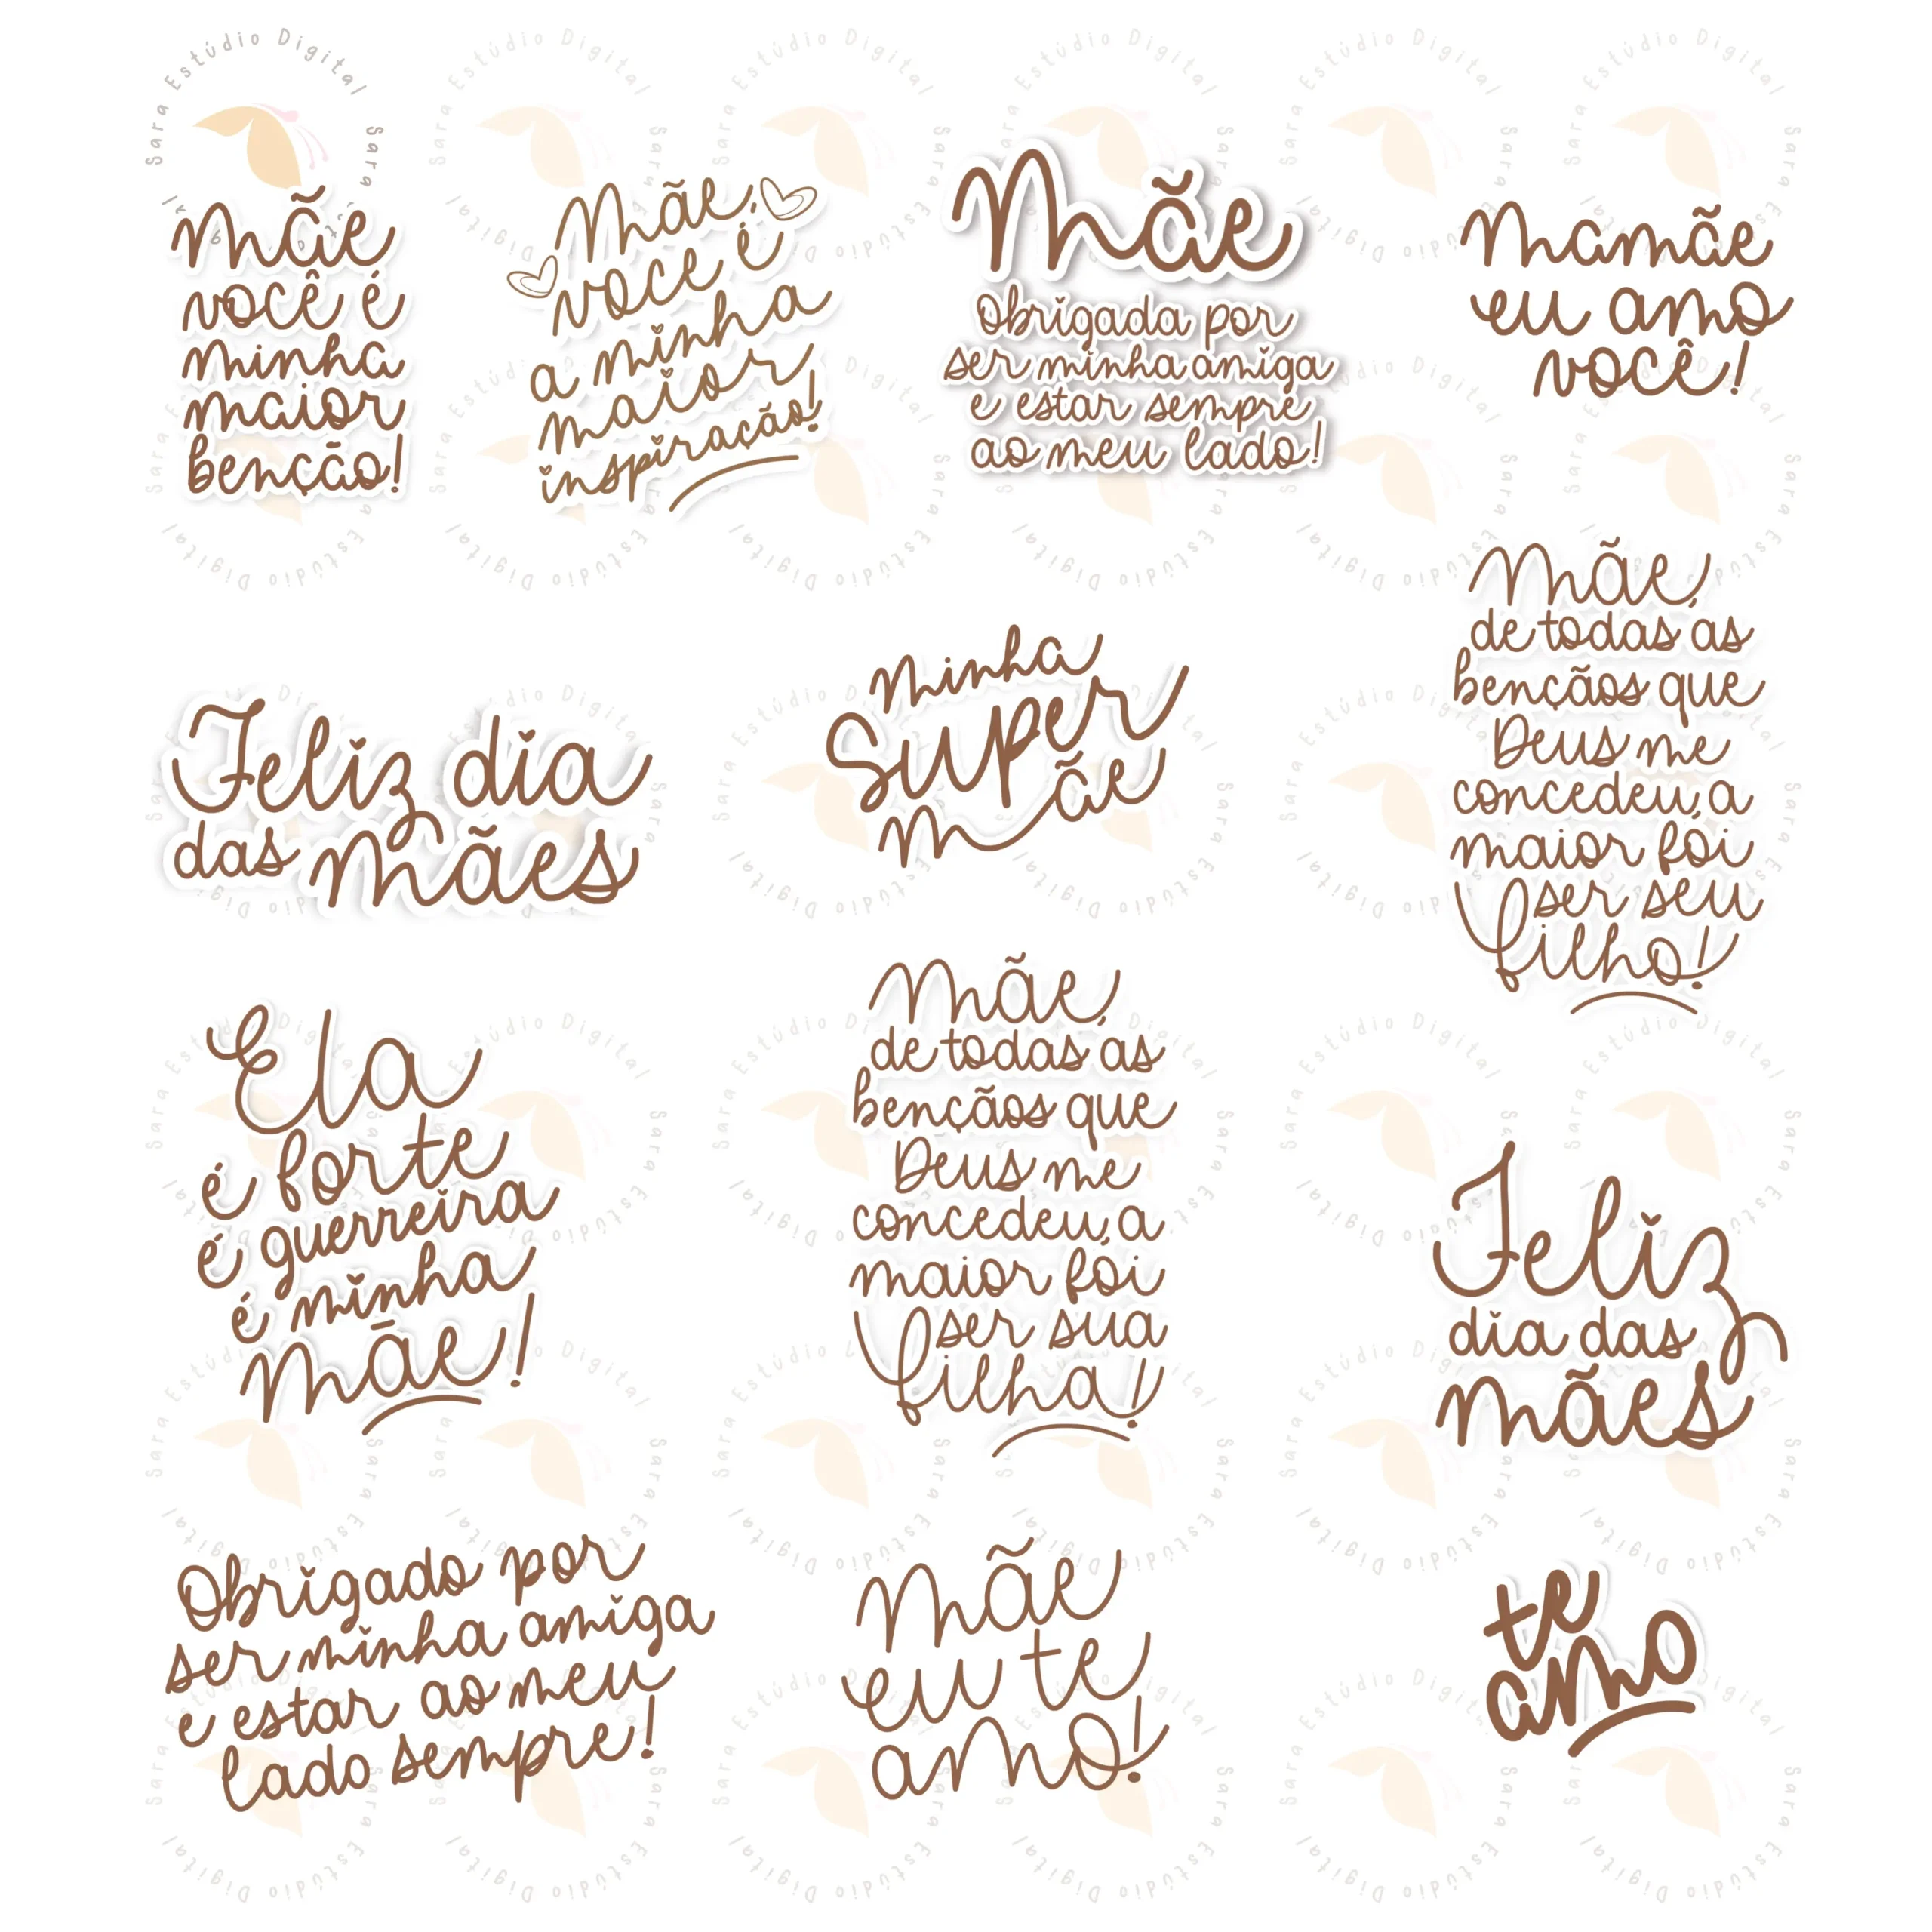 Sara Estúdio Digital
mãe
você é
minha
maior
benção!
Mãe,
você é
a minha
maior
inspiração!
Mãe
obrigada por
ser minha amiga
e estar sempre
ao meu lado!
Mamãe
eu amo
você!
Feliz dia
das mães
Minha
Super
mãe
Mãe,
de todas as
bençãos que
Deus me
concedeu, a
maior foi
ser seu
filho!
Ela
é forte
é guerreira
é minha
mãe!
Mãe,
de todas as
bençãos que
Deus me
concedeu, a
maior foi
ser sua
filha!
Feliz
dia das
mães
Obrigado por
ser minha amiga
e estar ao meu
lado sempre!
Mãe
eu te
amo!
te
amo